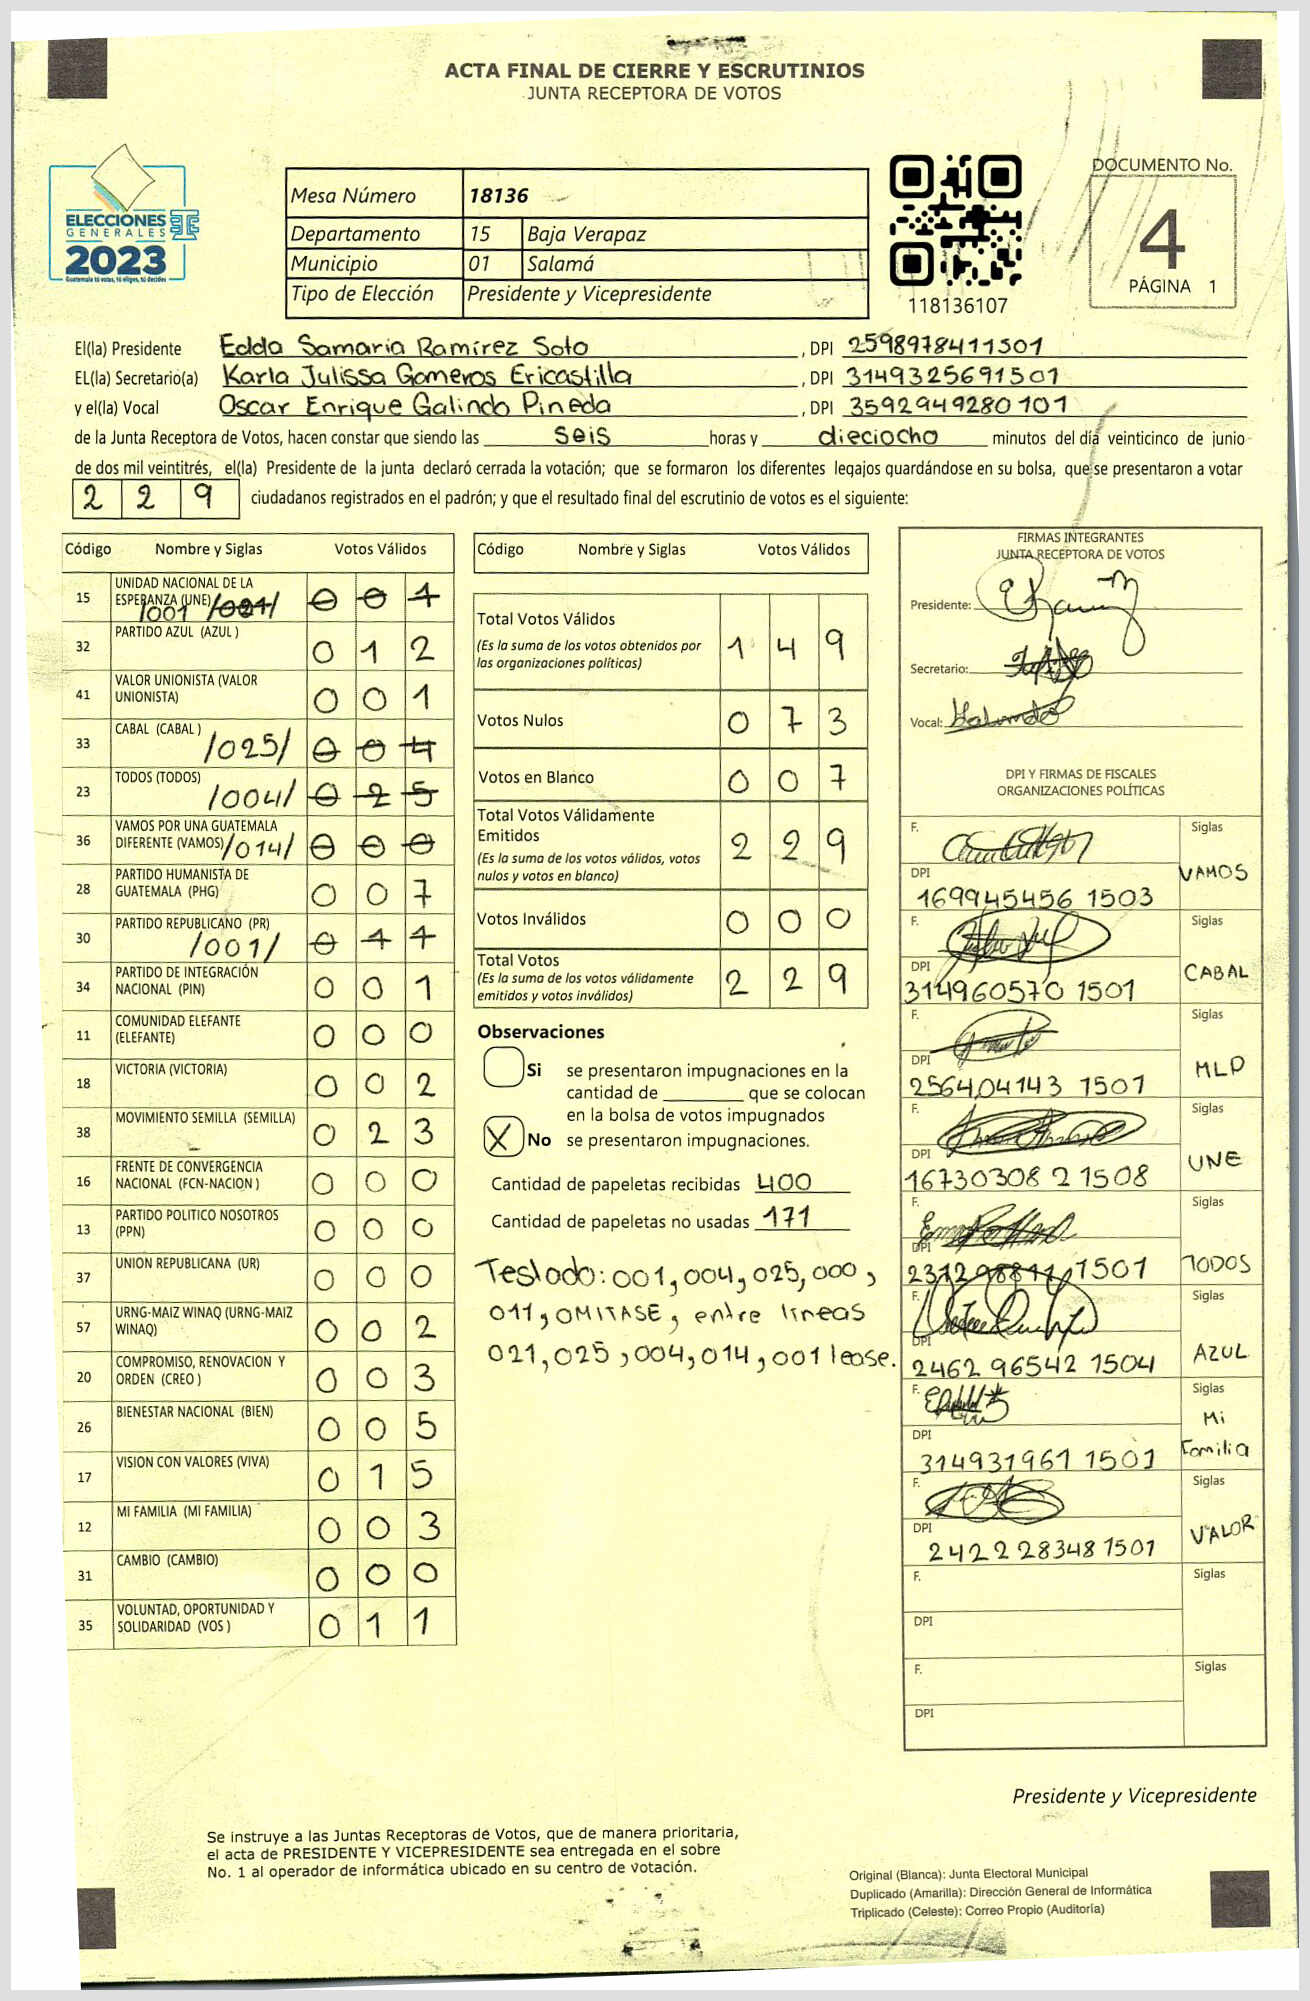 ACTA FINAL DE CIERRE Y ESCRUTINIOS
JUNTA RECEPTORA DE VOTOS
ELECCIONES
GENERALES
2023
Guatemala tú votas, tú eliges, tú decides
Mesa Número 18136
Departamento 15 Baja Verapaz
Municipio 01 Salamá
Tipo de Elección Presidente y Vicepresidente
118136107
DOCUMENTO No.
4
PÁGINA 1
El(la) Presidente Edda Samaria Ramírez Soto, DPI 2598978411501
EL(la) Secretario(a) Karla Julissa Gomeros Ericastilla, DPI 3149325691501
y el(la) Vocal Oscar Enrique Galindo Pineda, DPI 3592949280101
de la Junta Receptora de Votos, hacen constar que siendo las seis horas y dieciocho minutos del día veinticinco de junio
de dos mil veintitrés, el(la) Presidente de la junta declaró cerrada la votación; que se formaron los diferentes legajos guardándose en su bolsa, que se presentaron a votar
229 ciudadanos registrados en el padrón; y que el resultado final del escrutinio de votos es el siguiente:
Código Nombre y Siglas Votos Válidos
15 UNIDAD NACIONAL DE LA ESPERANZA (UNE) /001 /021/ 0 0 1
32 PARTIDO AZUL (AZUL ) 0 1 2
41 VALOR UNIONISTA (VALOR UNIONISTA) 0 0 1
33 CABAL (CABAL ) /025/ 0 0 4
23 TODOS (TODOS) /004/ 0 2 5
36 VAMOS POR UNA GUATEMALA DIFERENTE (VAMOS) /014/ 0 0 0
28 PARTIDO HUMANISTA DE GUATEMALA (PHG) 0 0 7
30 PARTIDO REPUBLICANO (PR) /001/ 0 1 1
34 PARTIDO DE INTEGRACIÓN NACIONAL (PIN) 0 0 1
11 COMUNIDAD ELEFANTE (ELEFANTE) 0 0 0
18 VICTORIA (VICTORIA) 0 0 2
38 MOVIMIENTO SEMILLA (SEMILLA) 0 2 3
16 FRENTE DE CONVERGENCIA NACIONAL (FCN-NACION ) 0 0 0
13 PARTIDO POLITICO NOSOTROS (PPN) 0 0 0
37 UNION REPUBLICANA (UR) 0 0 0
57 URNG-MAIZ WINAQ (URNG-MAIZ WINAQ) 0 0 2
20 COMPROMISO, RENOVACION Y ORDEN (CREO ) 0 0 3
26 BIENESTAR NACIONAL (BIEN) 0 0 5
17 VISION CON VALORES (VIVA) 0 1 5
12 MI FAMILIA (MI FAMILIA) 0 0 3
31 CAMBIO (CAMBIO) 0 0 0
35 VOLUNTAD, OPORTUNIDAD Y SOLIDARIDAD (VOS ) 0 1 1
Código Nombre y Siglas Votos Válidos
Total Votos Válidos 1 4 9
(Es la suma de los votos obtenidos por
las organizaciones políticas)
Votos Nulos 0 7 3
Votos en Blanco 0 0 7
Total Votos Válidamente
Emitidos 2 2 9
(Es la suma de los votos válidos, votos
nulos y votos en blanco)
Votos Inválidos 0 0 0
Total Votos 2 2 9
(Es la suma de los votos válidamente
emitidos y votos inválidos)
Observaciones
Si se presentaron impugnaciones en la
cantidad de ________ que se colocan
en la bolsa de votos impugnados
X No se presentaron impugnaciones.
Cantidad de papeletas recibidas 400
Cantidad de papeletas no usadas 171
Testado: 001, 004, 025, 000,
011, OMITASE, entre líneas
021, 025, 004, 014, 001 lease.
FIRMAS INTEGRANTES
JUNTA RECEPTORA DE VOTOS
Presidente:
Secretario:
Vocal: Galindo
DPI Y FIRMAS DE FISCALES
ORGANIZACIONES POLÍTICAS
F. Siglas
DPI VAMOS
169945456 1503
F. Siglas
DPI CABAL
314960570 1501
F. Siglas
DPI MLP
256404143 1501
F. Siglas
DPI UNE
16730308 2 1508
F. Siglas
DPI TODOS
231298811 1501
F. Siglas
DPI AZUL
2462 96542 1504
F. Siglas
DPI Mi Familia
314931961 1501
F. Siglas
DPI VALOR
2422 28348 1501
F. Siglas
DPI
F. Siglas
DPI
Presidente y Vicepresidente
Se instruye a las Juntas Receptoras de Votos, que de manera prioritaria,
el acta de PRESIDENTE Y VICEPRESIDENTE sea entregada en el sobre
No. 1 al operador de informática ubicado en su centro de votación.
Original (Blanca): Junta Electoral Municipal
Duplicado (Amarilla): Dirección General de Informática
Triplicado (Celeste): Correo Propio (Auditoría)